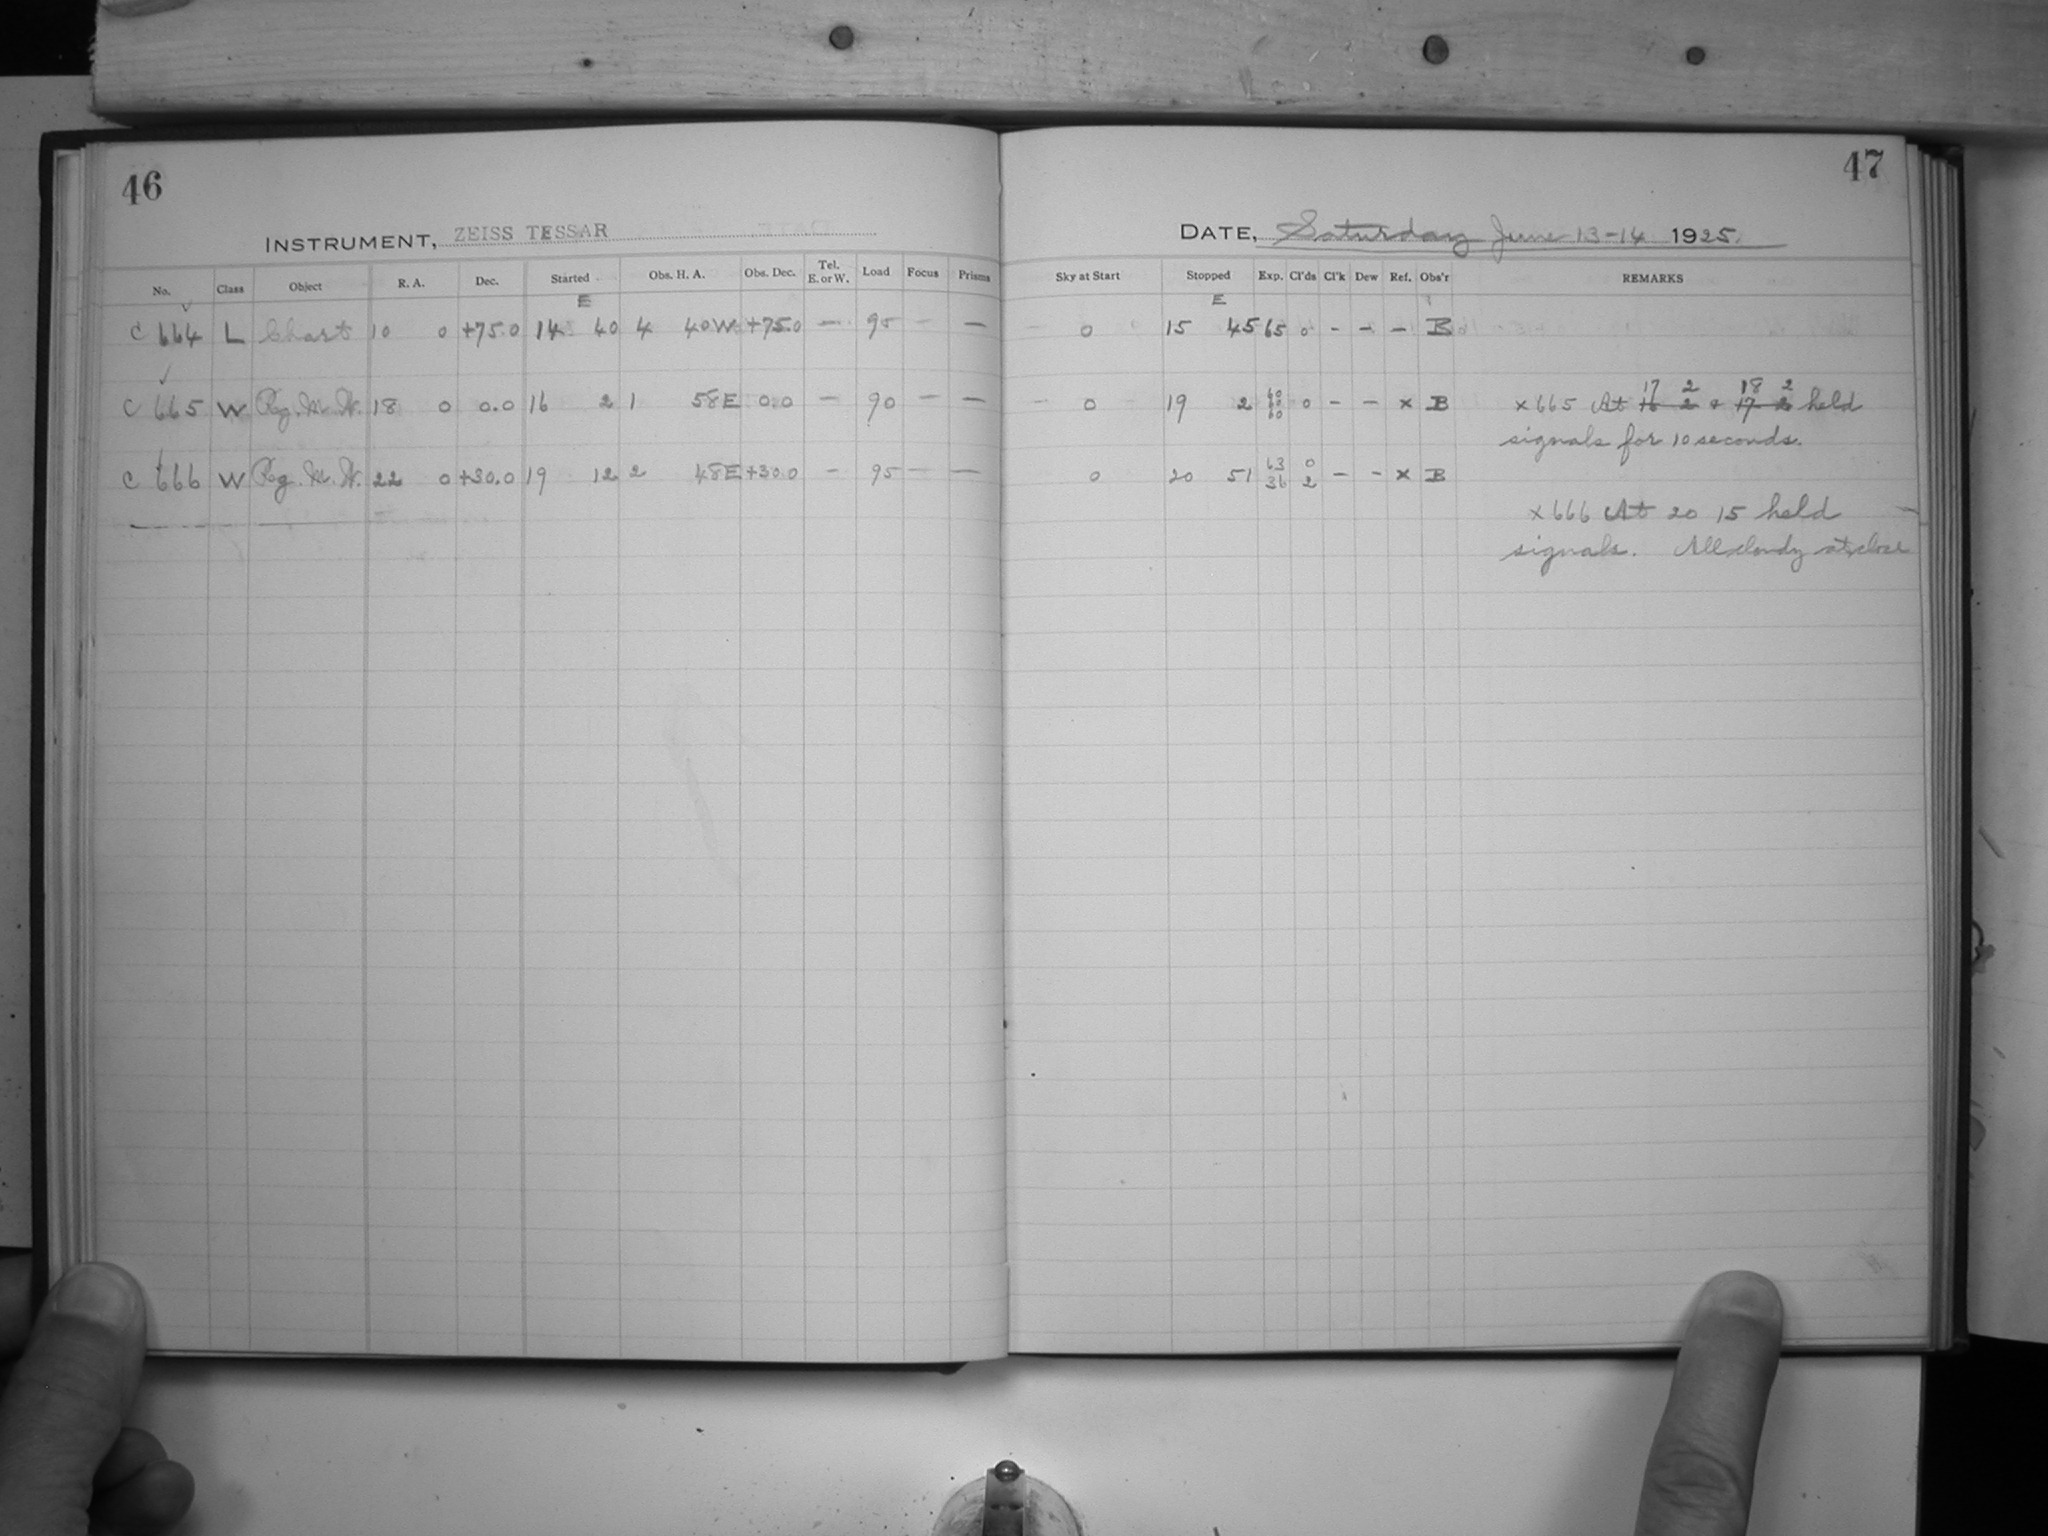 46
INSTRUMENT, ZEISS TESSAR
No. Class Object R. A. Dec. Started Obs. H. A. Obs. Dec. Tel. E. or W. Load Focus Prisms
E
C 664 L Chart 10 0 +75.0 14 40 4 40W +75.0 – 95 – –
C 665 W Reg. M. W. 18 0 0.0 16 2 1 58E 0.0 – 90 – –
C 666 W Reg. M. W. 22 0 +30.0 19 12 2 48E +30.0 – 95 – –
47
DATE, Saturday June 13-14 1925.
Sky at Start Stopped Exp. Cl'ds Cl'k Dew Ref. Obs'r REMARKS
E
0 15 45 65 0 – – – B
17 2 18 2
0 19 2 60 60 60 0 – – x B x665 At 16 2 + 17 2 held
signals for 10 seconds.
0 20 51 63 36 0 2 – – x B
x666 At 20 15 held
signals. All cloudy at close